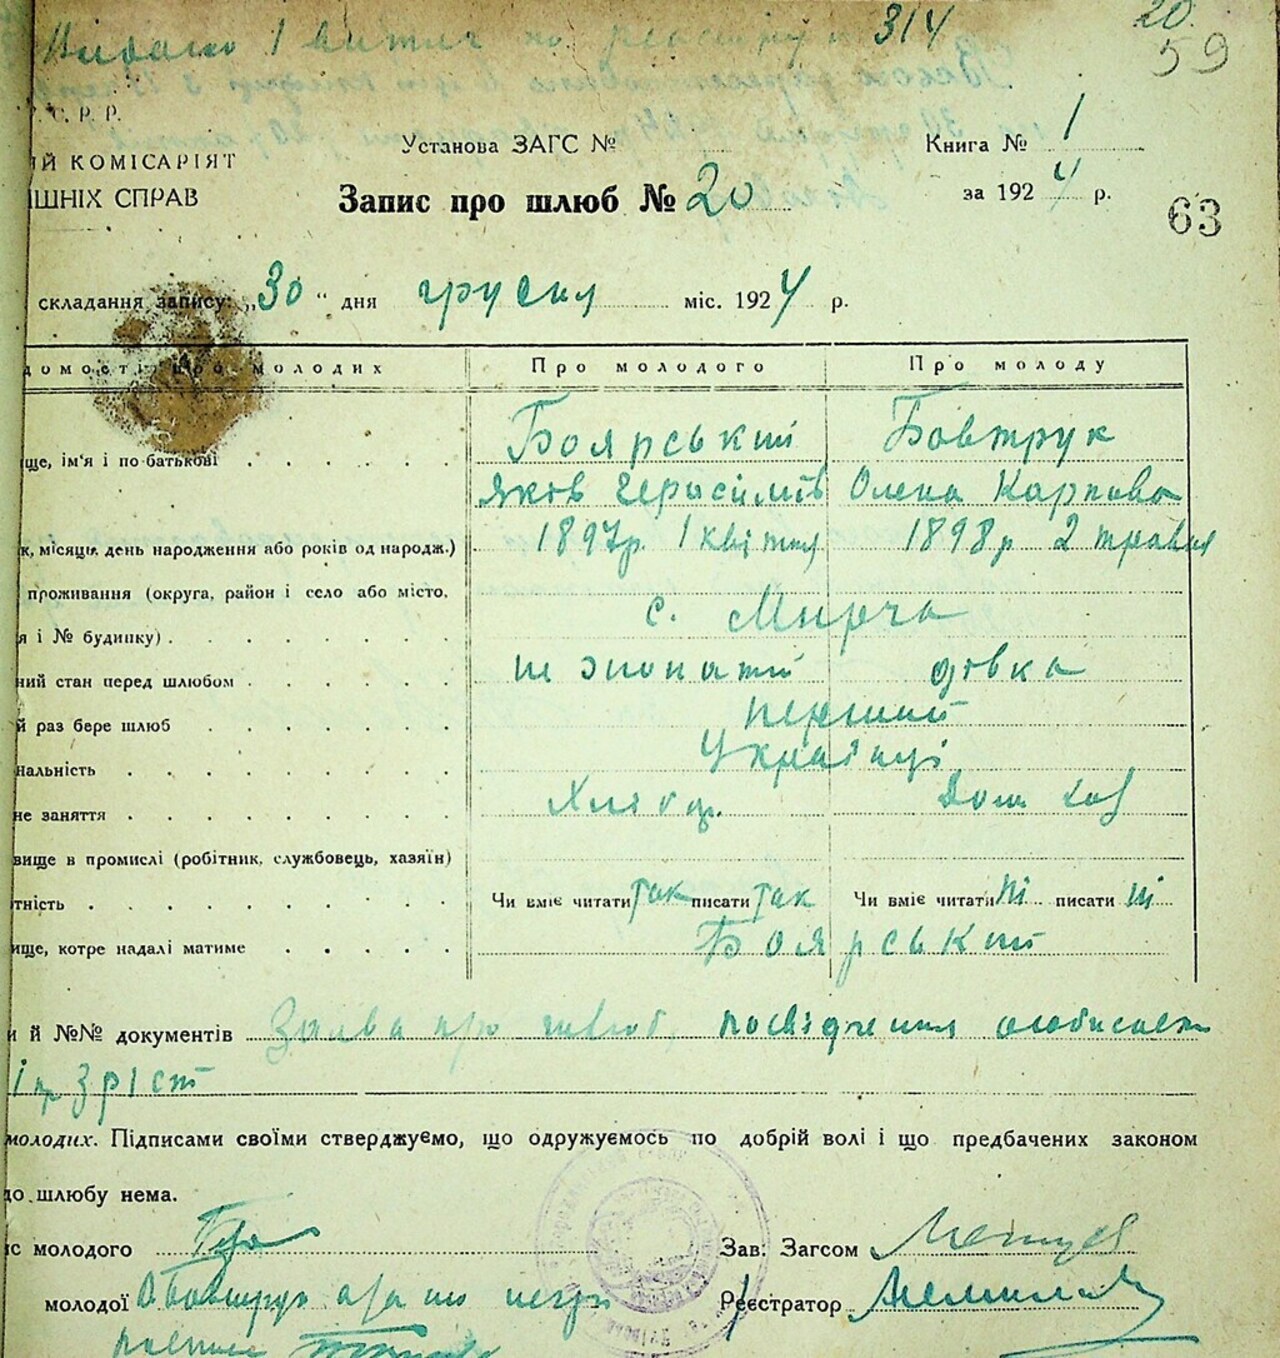 Видано 1 витяг по реєстру № 314
20.
59
С. Р. Р.
Й КОМІСАРІЯТ
ШНІХ СПРАВ
Установа ЗАГС №
Книга № 1
Запис про шлюб № 20
за 1924 р.
63
складання запису: „30“ дня грудня міс. 1924 р.
домості про молодих
Про молодого
Про молоду
ще, ім'я і по батькові
Боярський
Бовтрук
Яків Герасимів
Олена Карпова
к, місяць, день народження або років од народж.)
1897р. 1 квітня
1898р 2 травня
проживання (округа, район і село або місто,
я і № будинку)
с. Мирча
ний стан перед шлюбом
не жонатий
дівка
й раз бере шлюб
перший
нальність
Українці
не заняття
Хлібор.
Дом
вище в промислі (робітник, службовець, хазяїн)
тність
Чи вміє читати так писати так
Чи вміє читати ні писати ні
ище, котре надалі матиме
Боярський
и й №№ документів Заява про шлюб, посвідчення
молодих. Підписами своїми стверджуємо, що одружуємось по добрій волі і що предбачених законом
до шлюбу нема.
с молодого
Зав. Загсом
молодої О Бовтрук а за
Реєстратор